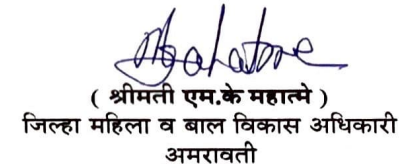 ( श्रीमती एम.के महात्मे )
जिल्हा महिला व बाल विकास अधिकारी
अमरावती